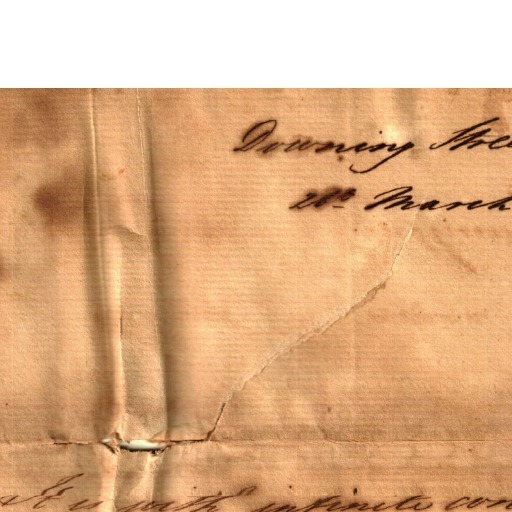 Downing Stree
28th March
It is with infinite con